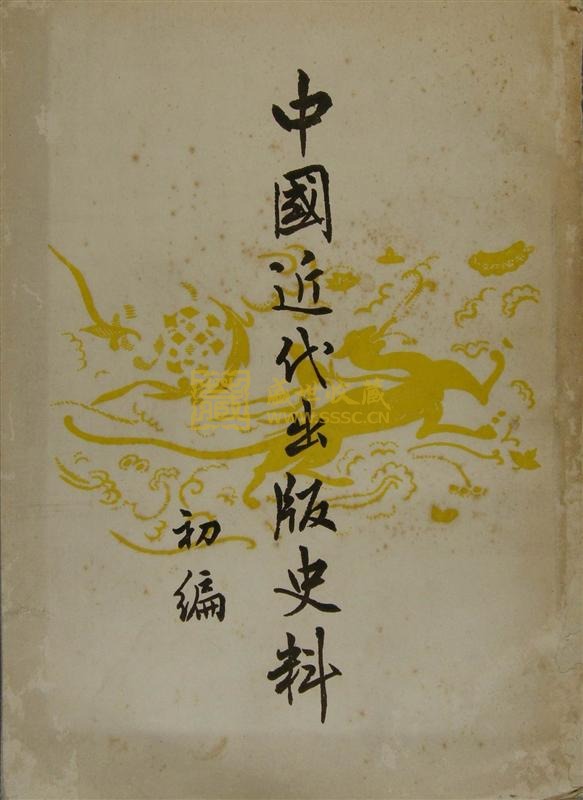 中國近代出版史料
初編
盛世收藏
WWW.SSSC.CN